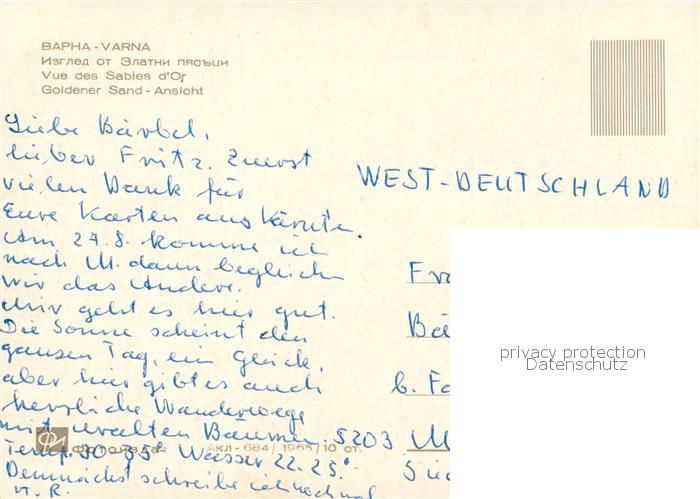 ВАРНА - VARNA
Изглед от Златни пясъци
Vue des Sables d'Or
Goldener Sand - Ansicht
Liebe Bärbel,
lieber Fritz. Zuerst
vielen Dank für
Eure Karten aus Kärnten.
Am 27.8. komme ich
nach M. dann begleichen
wir das Andere.
Mir geht es hier gut.
Die Sonne scheint den
ganzen Tag, ein Glück,
aber hier gibt es auch
herrliche Wanderwege
mit uralten Bäumen.
Temp. 30-35° Wasser 22-25°.
Demnächst schreibe ich nochmal
WEST-DEUTSCHLAND
Fra
Bä
b. Fa
5203 M
Sie
privacy protection
Datenschutz
Фотоиздат АКЛ - 684/1968/10 ст.